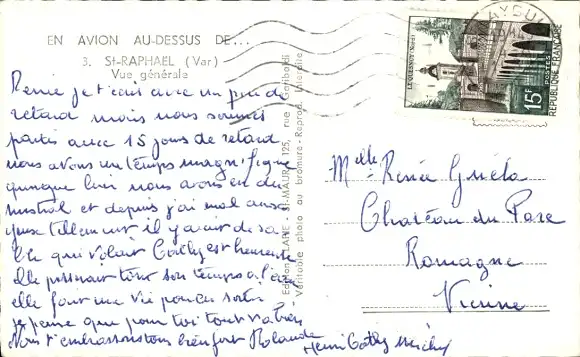 EN AVION AU-DESSUS DE...
3. St-RAPHAEL (Var)
Vue générale
Renée je t'écris avec un peu de
retard mais nous sommes
partis avec 15 jours de retard
nous avons un temps magnifique
quoique hier nous avons eu du
mistral et depuis j'ai mal aux
yeux tellement il y avait de sa
ble qui volait Cathy est heureuse
elle passerait tout son temps à l'eau
elle fait une vie pour en sortir
je pense que pour toi tout va bien
Nous t'embrassons tous bien fort Rolande
Henri Cathy Michel
Editions LAPIE - St-MAUR 125, rue Garibaldi
Véritable photo au bromure - Reprod. interdite
LE QUESNOY (Nord)
15F
POSTES
REPUBLIQUE FRANÇAISE
Melle Renée Guéla
Chateau du Parc
Romagne
Vienne